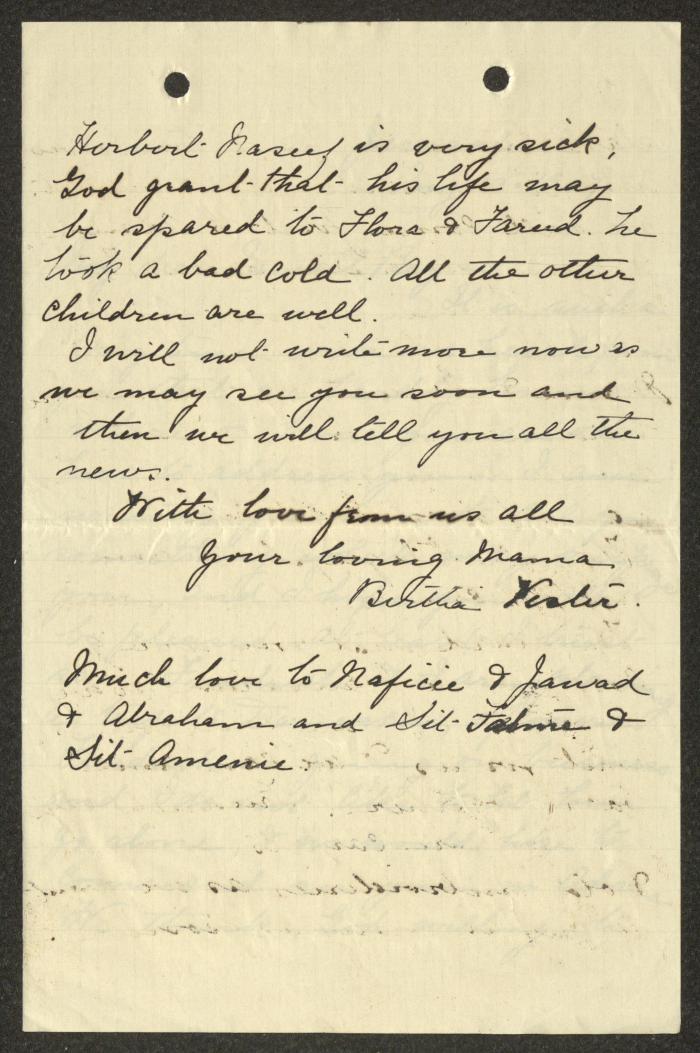 Herbert Naseef is very sick,
God grant that his life may
be spared to Flora & Fareed. he
took a bad cold. All the other
children are well.
I will not write more now as
we may see you soon and
then we will tell you all the
news.
With love from us all
Your loving Mama
Bertha Vester.
Much love to Naficie & Jawad
& Abraham and Sit Fatme &
Sit Amenie